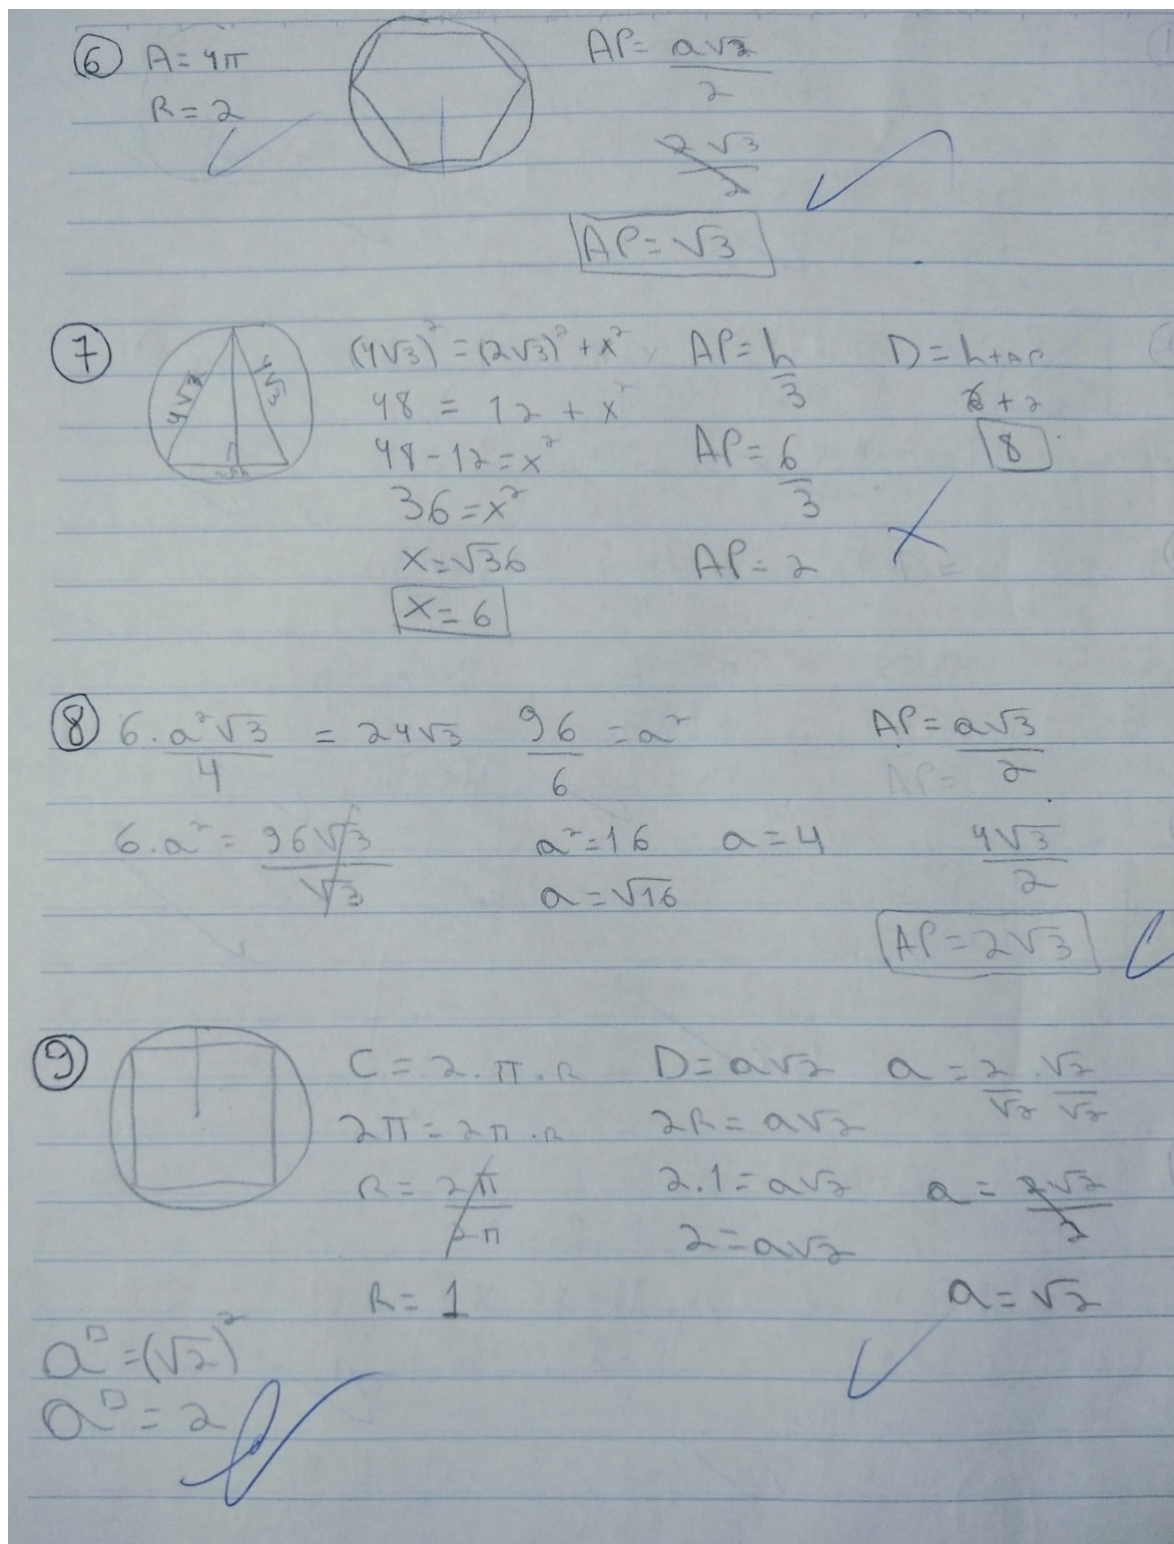 6 A = 4π
R = 2
AP = a√3/2
2√3/2
AP = √3
7 4√3 4√3
(4√3)² = (2√3)² + x²
48 = 12 + x²
48 - 12 = x²
36 = x²
x = √36
x = 6
AP = h/3
AP = 6/3
AP = 2
D = h + AP
6 + 2
8
8 6 . a²√3/4 = 24√3
6 . a² = 96√3/√3
96/6 = a²
a² = 16
a = √16
a = 4
AP = a√3/2
AP =
4√3/2
AP = 2√3
9 C = 2 . π . R
2π = 2π . R
R = 2π/2π
R = 1
D = a√2
2R = a√2
2 . 1 = a√2
2 = a√2
a = 2/√2 . √2/√2
a = 2√2/2
a = √2
a□ = (√2)²
a□ = 2